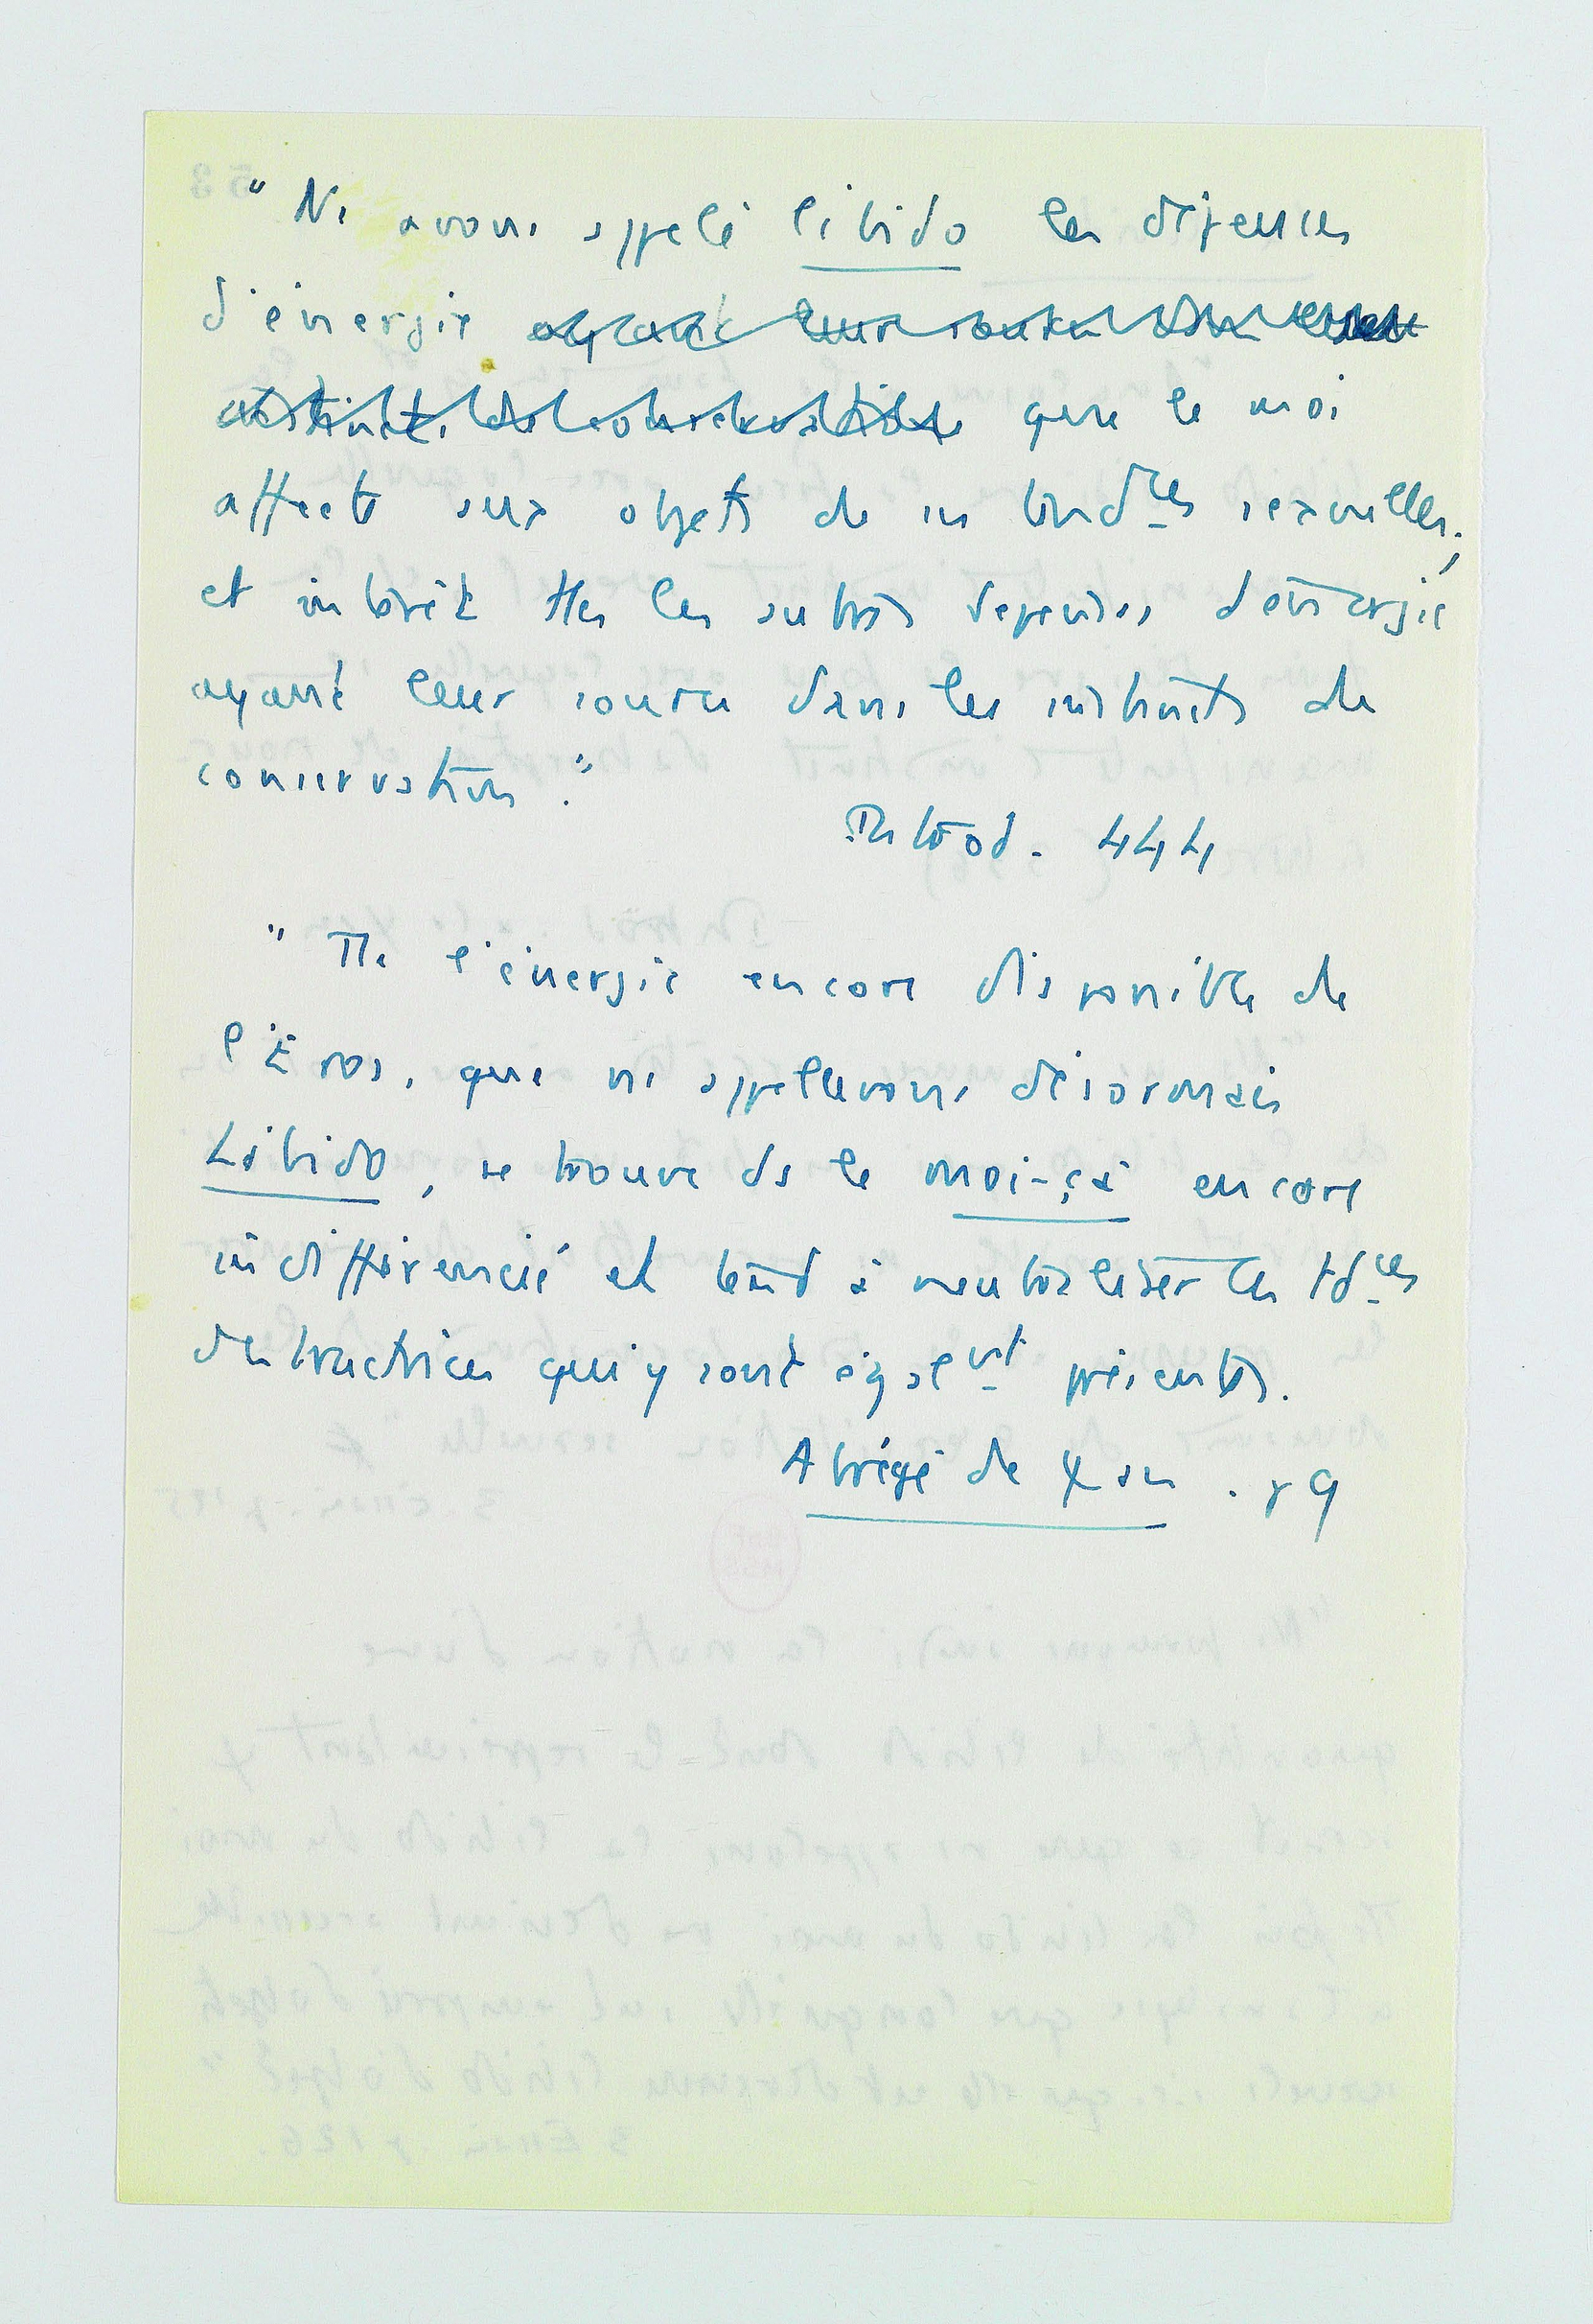 " Ns avons appelé libido les dépenses
d'énergie ayant leur source dans les
instincts de conservation que le moi
affecte aux objets de ses tendces sexuelles ;
et intérêt ttes les autres dépenses d'énergie
ayant leur source dans les instincts de
conservation ."
Introd. 444
" Tte l'énergie encore disponible de
l'Eros, que ns appellerons désormais
Libido, se trouve ds le moi-ça encore
indifférencié et tend à neutraliser les tdces
destructrices qui y sont égalemt présentes.
Abrégé de ψan . p 9